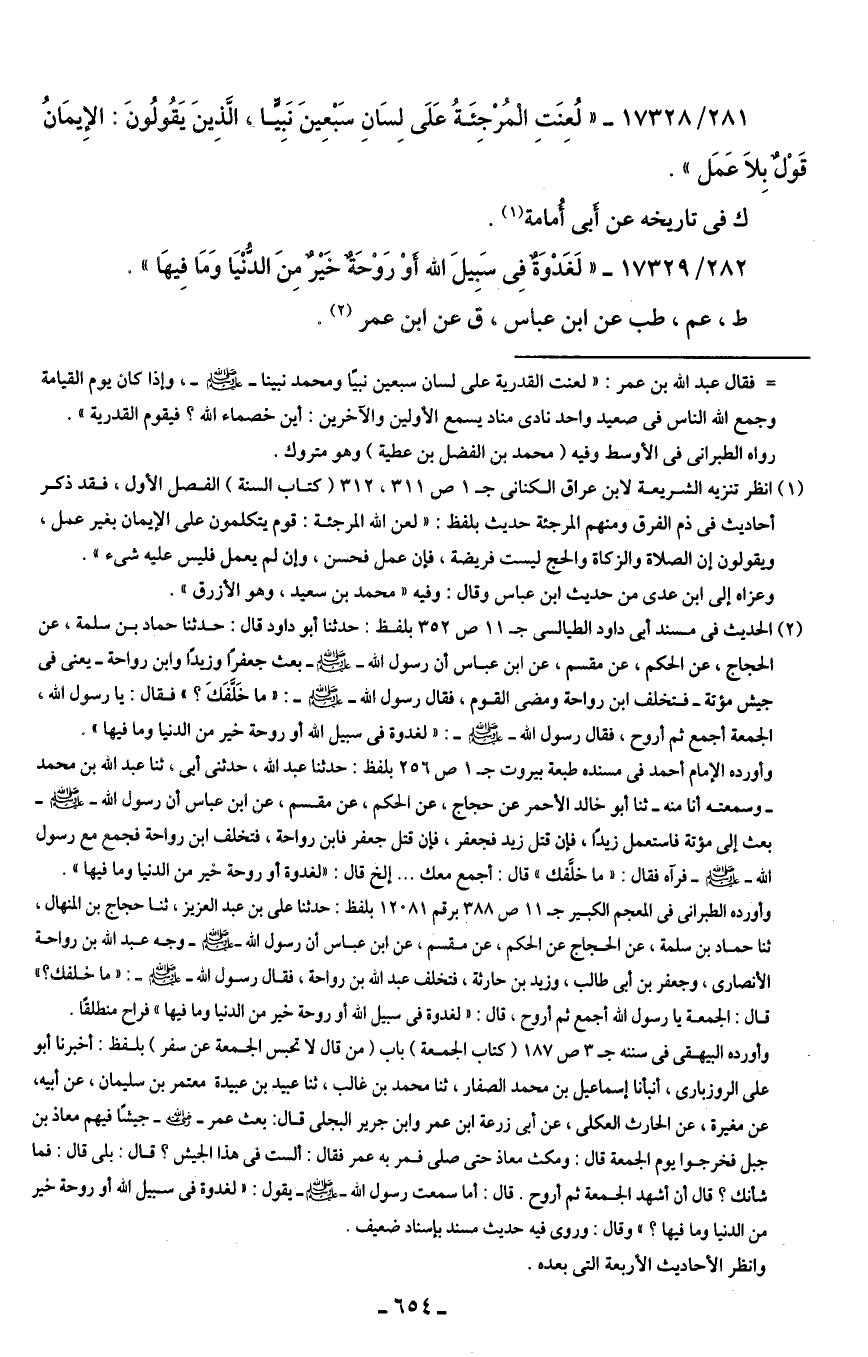 ١٧٣٢٨/٢٨١ ـ « لُعِنَتِ الْمُرْجِئَـةُ عَلَى لِسَانِ سَبْعِينَ نَبِيًّـا ، الَّذِينَ يَقُولُونَ : الإِيمَانُ
قَوْلٌ بِلاَ عَمَل » .
ك فى تاريخه عن أَبى أُمامة(١) .
١٧٣٢٩/٢٨٢ ـ « لَغَدْوَةٌ فِى سَبِيلَ الله أَوْ رَوْحَةٌ خَيْرٌ مِنَ الدُّنْيَا وَمَا فِيهَا » .
ط ، عم ، طب عن ابن عباس ، ق عن ابن عمر (٢) .
= فقال عبد الله بن عمر : « لعنت القدرية على لسان سبعين نبيًا ومحمد نبينا ـ ﷺ ـ ، وإذا كان يوم القيامة
وجمع الله الناس فى صعيد واحد نادى مناد يسمع الأولين والآخرين : أين خصماء الله ؟ فيقوم القدرية » .
رواه الطبرانى فى الأوسط وفيه ( محمد بن الفضل بن عطية ) وهو متروك .
(١) انظر تنزيه الشريعـة لابن عراق الـكنانى جـ ١ ص ٣١١ ، ٣١٢ ( كتـاب السنة ) الفـصل الأول ، فـقد ذكـر
أحاديث فى ذم الفرق ومنهم المرجئة حديث بلفظ : « لعن الله المرجئـة : قوم يتكلمون على الإيمان بغير عمل ،
ويقولون إن الصلاة والزكاة والحج ليست فريضة ، فإن عمل فحسن ، وإن لم يعمل فليس عليه شىء » .
وعزاه إلى ابن عدى من حديث ابن عباس وقال : وفيه « محمد بن سعيد ، وهو الأزرق » .
(٢) الحديث فى مسند أبى داود الطيالسى جـ ١١ ص ٣٥٢ بلفـظ : حدثنا أبو داود قال : حـدثنا حماد بـن سلمة ، عن
الحجاج ، عن الحكم ، عن مقسم ، عن ابن عبـاس أن رسول الله ـ ﷺ ـ بعث جعفرًا وزيدًا وابن رواحة ـ يعنى فى
جيش مؤتة ـ فـتخلف ابن رواحة ومضى القـوم ، فقال رسول الله ـ ﷺ ـ : « ما خَلَّفَكَ ؟ » فـقال : يا رسول الله ،
الجمعة أجمع ثم أروح ، فقال رسول الله ـ ﷺ ـ : « لغدوة فى سبيل الله أو روحة خير من الدنيا وما فيها » .
وأورده الإمام أحمد فى مسنده طبعة بيروت جـ ١ ص ٢٥٦ بلفظ : حدثنا عبد الله ، حدثنى أبى ، ثنا عبد الله بن محمد
ـ وسمعتـه أنا منه ـ ثنا أبو خالد الأحمر عن حجاج ، عن الحكم ، عن مقـسم ، عن ابن عباس أن رسول الله ـ ﷺ ـ
بعث إلى مؤتة فاستعمل زيدًا ، فإن قتل زيد فجعفر ، فإن قتل جعفر فابن رواحة ، فتخلف ابن رواحة فجمع مع رسول
الله ـ ﷺ ـ فرآه فقال : « ما خلَّفك » قال : أجمع معك ... إلخ قال : «لغدوة أو روحة خير من الدنيا وما فيها» .
وأورده الطبرانى فى المعجم الكبير جـ ١١ ص ٣٨٨ برقم ١٢٠٨١ بلفظ : حدثنا على بن عبد العزيز ، ثنـا حجاج بن المنهال ،
ثنا حمـاد بن سلمة ، عن الحـجاج عن الحكم ، عن مـقسم ، عن ابن عباس أن رسول الله ـ ﷺ ـ وجـه عبـد الله بن رواحـة
الأنصارى ، وجعفر بن أبى طالب ، وزيد بن حارثة ، فتخلف عبد الله بن رواحة ، فقـال رسـول الله ـ ﷺ ـ : « ما خـلفك؟»
قـال : الجمعة يا رسول الله أجمع ثم أروح ، قال : « لغدوة فى سبيل الله أو روحة خير من الدنيا وما فيها » فراح منطلقًا .
وأورده البيهـقى فى سننه جـ ٣ ص ١٨٧ ( كتاب الجمعة ) باب ( من قال لا تحبس الجـمعة عن سفر ) بلـفظ : أخبرنا أبو
على الروزبارى ، أنبأنا إسماعيل بن محمد الصفار ، ثنا محمد بن غالب ، ثنا عبيد بن عبيدة معتمر بن سليمان ، عن أبيه،
عن مغيرة ، عن الحارث العكلى ، عن أبى زرعة ابن عمر وابن جرير البجلى قـال: بعث عمر ـ رضي الله عنه ـ جيشًا فيهم معاذ بن
جبل فخرجـوا يوم الجمعة قال : ومكث معاذ حتى صلى فـمر به عمر فقال : ألست فى هذا الجيش ؟ قـال : بلى قال : فما
شأنك ؟ قال أن أشهد الجـمعة ثم أروح . قال : أما سمعت رسول الله ـ ﷺ ـ يقول : « لغدوة فى سـبيل الله أو روحة خير
من الدنيا وما فيها ؟ » وقال : وروى فيه حديث مسند بإسناد ضعيف .
وانظر الأحاديث الأربعة التى بعده .
ـ ٦٥٤ ـ